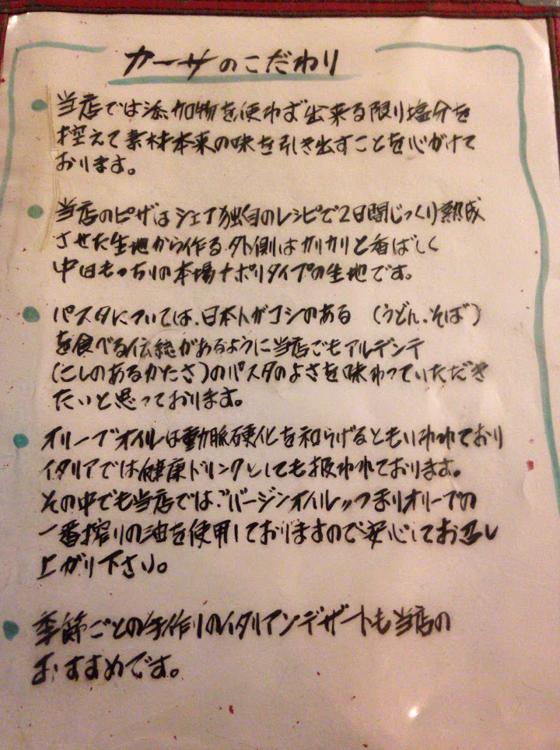 カーサのこだわり
当店では添加物を使わず出来る限り塩分を
控えて素材本来の味を引き出すことを心がけて
おります。
当店のピザはシェフ独自のレシピで2日間じっくり熟成
させた生地から作る、外側はカリカリと香ばしく
中はもっちりの本場ナポリタイプの生地です。
パスタについては、日本人がコシのある (うどん、そば)
を食べる伝統があるように当店でもアルデンテ
(こしのあるかたさ)のパスタのよさを味わっていただき
たいと思っております。
オリーブオイルは動脈硬化を和らげるともいわれており
イタリアでは健康ドリンクとしても扱われております。
その中でも当店では、"バージンオイル"つまりオリーブの
一番搾りの油を使用しておりますので安心してお召し
上がり下さい。
季節ごとの手作りのイタリアンデザートも当店の
おすすめです。